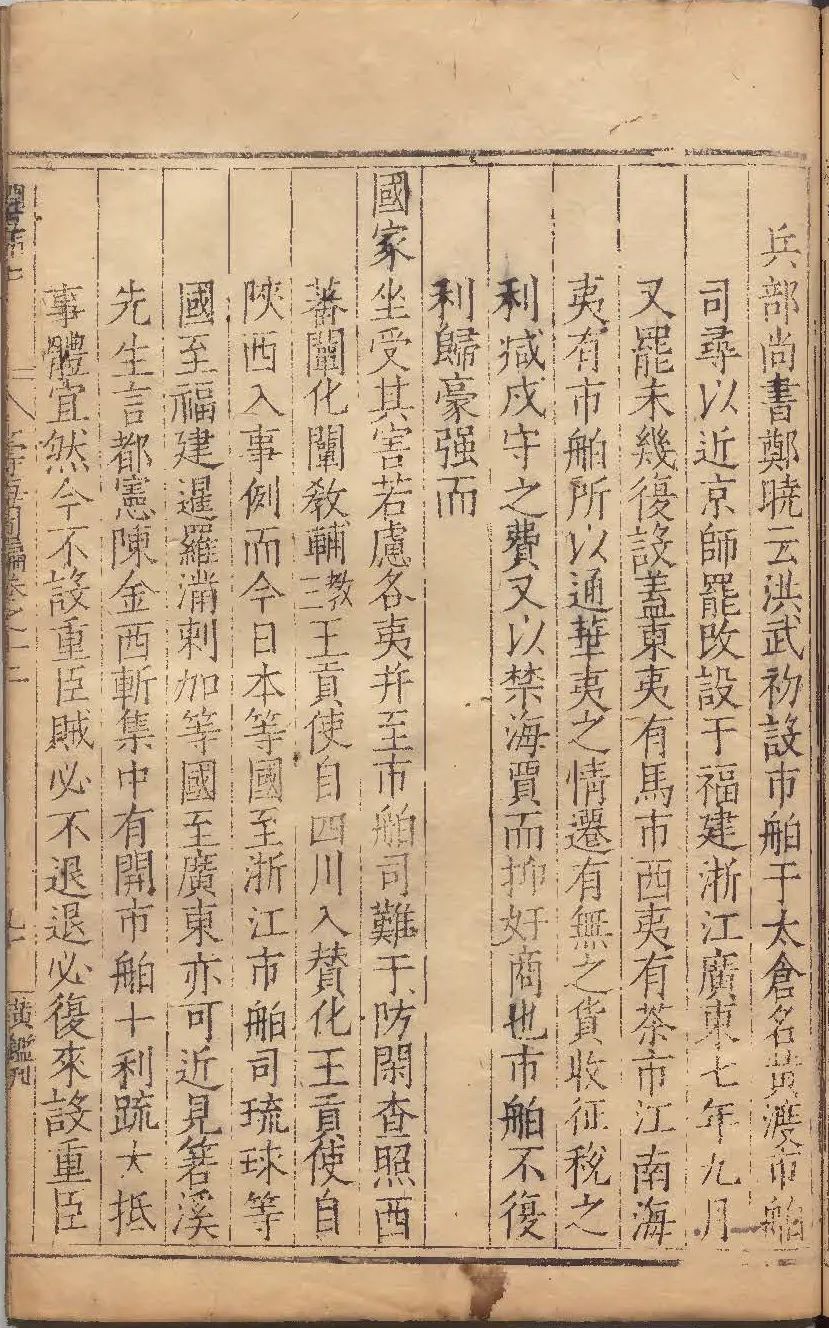 兵部尚書鄭曉云洪武初設市舶于太倉名黃渡市舶
司尋以近京師罷改設于福建浙江廣東七年九月
又罷未幾復設蓋東夷有馬市西夷有茶市江南海
夷有市舶所以通華夷之情遷有無之貨收征稅之
利减戍守之費又以禁海賈而抑奸商也市舶不復
利歸豪强而
國家坐受其害若慮各夷并至市舶司難于防閑查照西
蕃闡化闡教輔教三王貢使自四川入賛化王貢使自
陜西入事例而今日本等國至浙江市舶司琉球等
國至福建暹羅滿剌加等國至廣東亦可近見箬溪
先生言都憲陳金西斬集中有開市舶十利疏大抵
事體宜然今不設重臣賊必不退退必復來設重臣
卷之十二
黃鑑刊